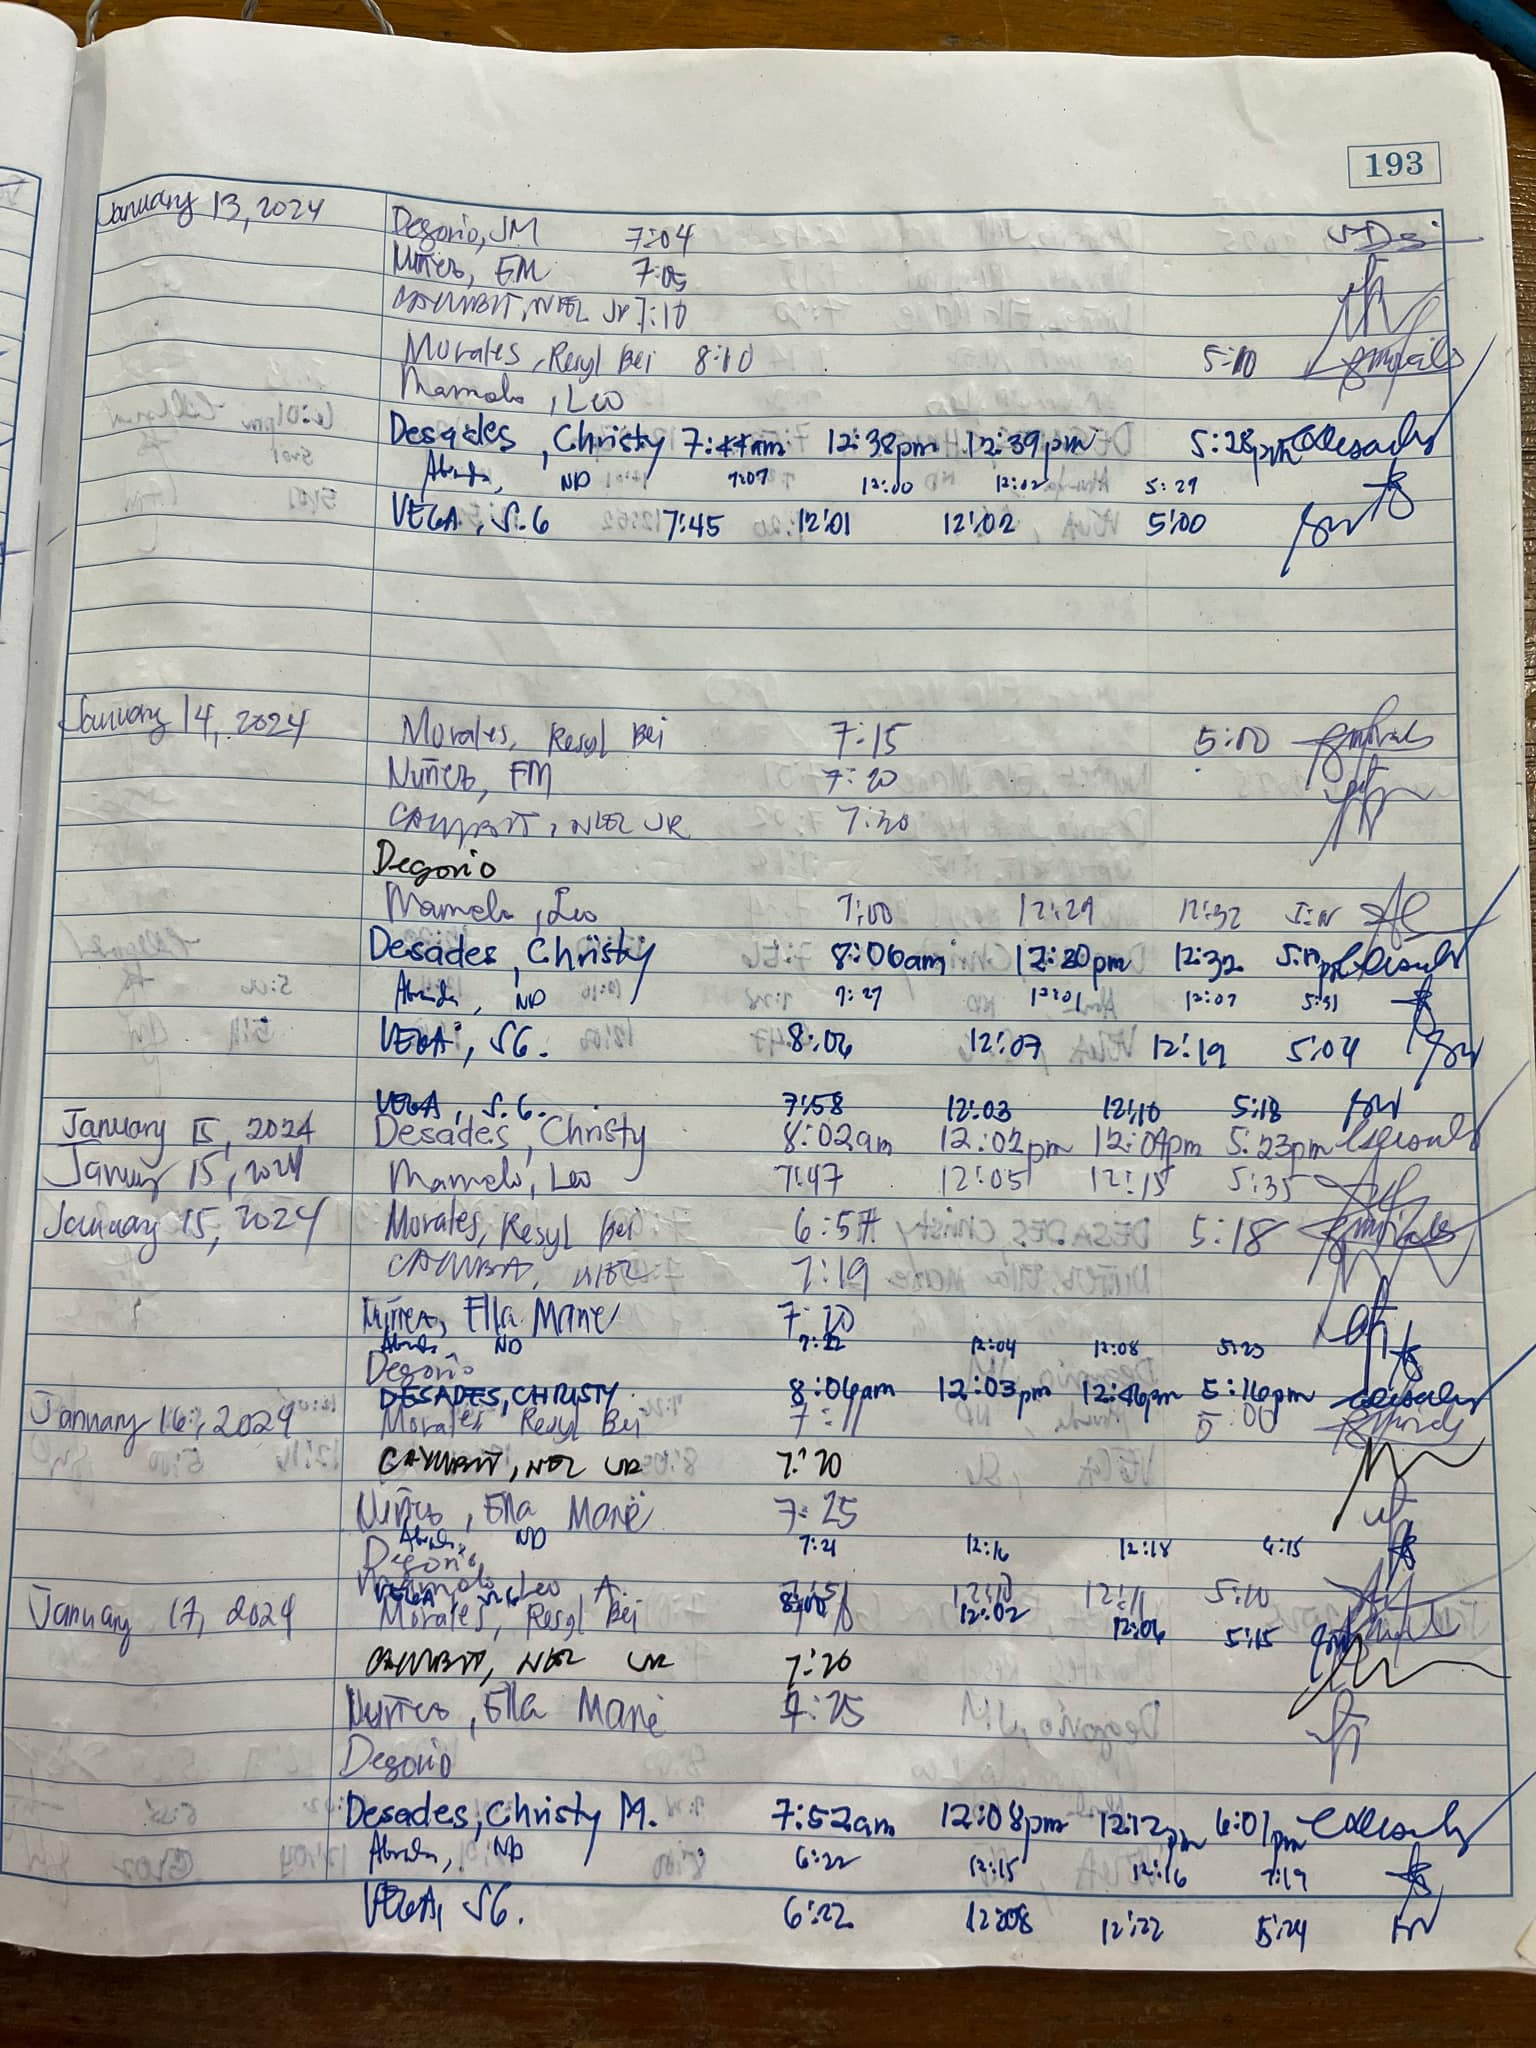 193
January 13, 2024 Degorio, JM 7:04
Nuñez, EM 7:05
CAYUBIT, NIEL JR 7:10
Morales, Resyl Bei 8:10 5:10
Mamelo, Leo
Desades, Christy 7:44am 12:38pm 12:39pm 5:28pm
Abunda, ND 7:07 12:00 12:02 5:27
VEGA, S.G 7:45 12:01 12:02 5:00
January 14, 2024 Morales, Resyl Bei 7:15 5:00
Nuñez, EM 7:20
CAYUBIT, NIEL JR 7:20
Degorio
Mamelo, Leo 7:00 12:29 12:32
Desades, Christy 8:06am 12:20pm 12:32
Abunda, ND 7:27 12:01 12:07 5:31
VEGA, SG. 8:06 12:07 12:19 5:04
VEGA, S.G. 7:58 12:03 12:10 5:18
January 15, 2024 Desades, Christy 8:02am 12:02pm 12:04pm 5:23pm
January 15, 2024 Mamelo, Leo 7:47 12:05 12:15 5:35
January 15, 2024 Morales, Resyl Bei 6:57 5:18
CAYUBIT, NIEL 7:19
Nuñez, Ella Marie 7:20
Abunda ND 7:22 12:04 12:08 5:23
Degorio
DESADES, CHRISTY 8:06am 12:03pm 12:46pm 5:16pm
January 16, 2024 Morales Resyl Bei 7:11 5:00
CAYUBIT, NIEL JR 7:20
Nuñez, Ella Marie 7:25
Abunda ND 7:21 12:16 12:18 6:15
Degorio
Mamelo, Leo A 12:10 12:11 5:10
VEGA, S.G 8:00 12:02 12:06 5:15
January 17, 2024 Morales, Resyl Bei
CAYUBIT, NIEL JR 7:20
Nuñez, Ella Marie 7:25
Degorio
Desades, Christy M. 7:52am 12:08pm 12:12pm 6:01pm
Abunda, ND 6:22 12:15 12:16 7:19
VEGA, SG. 6:22 12:08 12:22 5:24